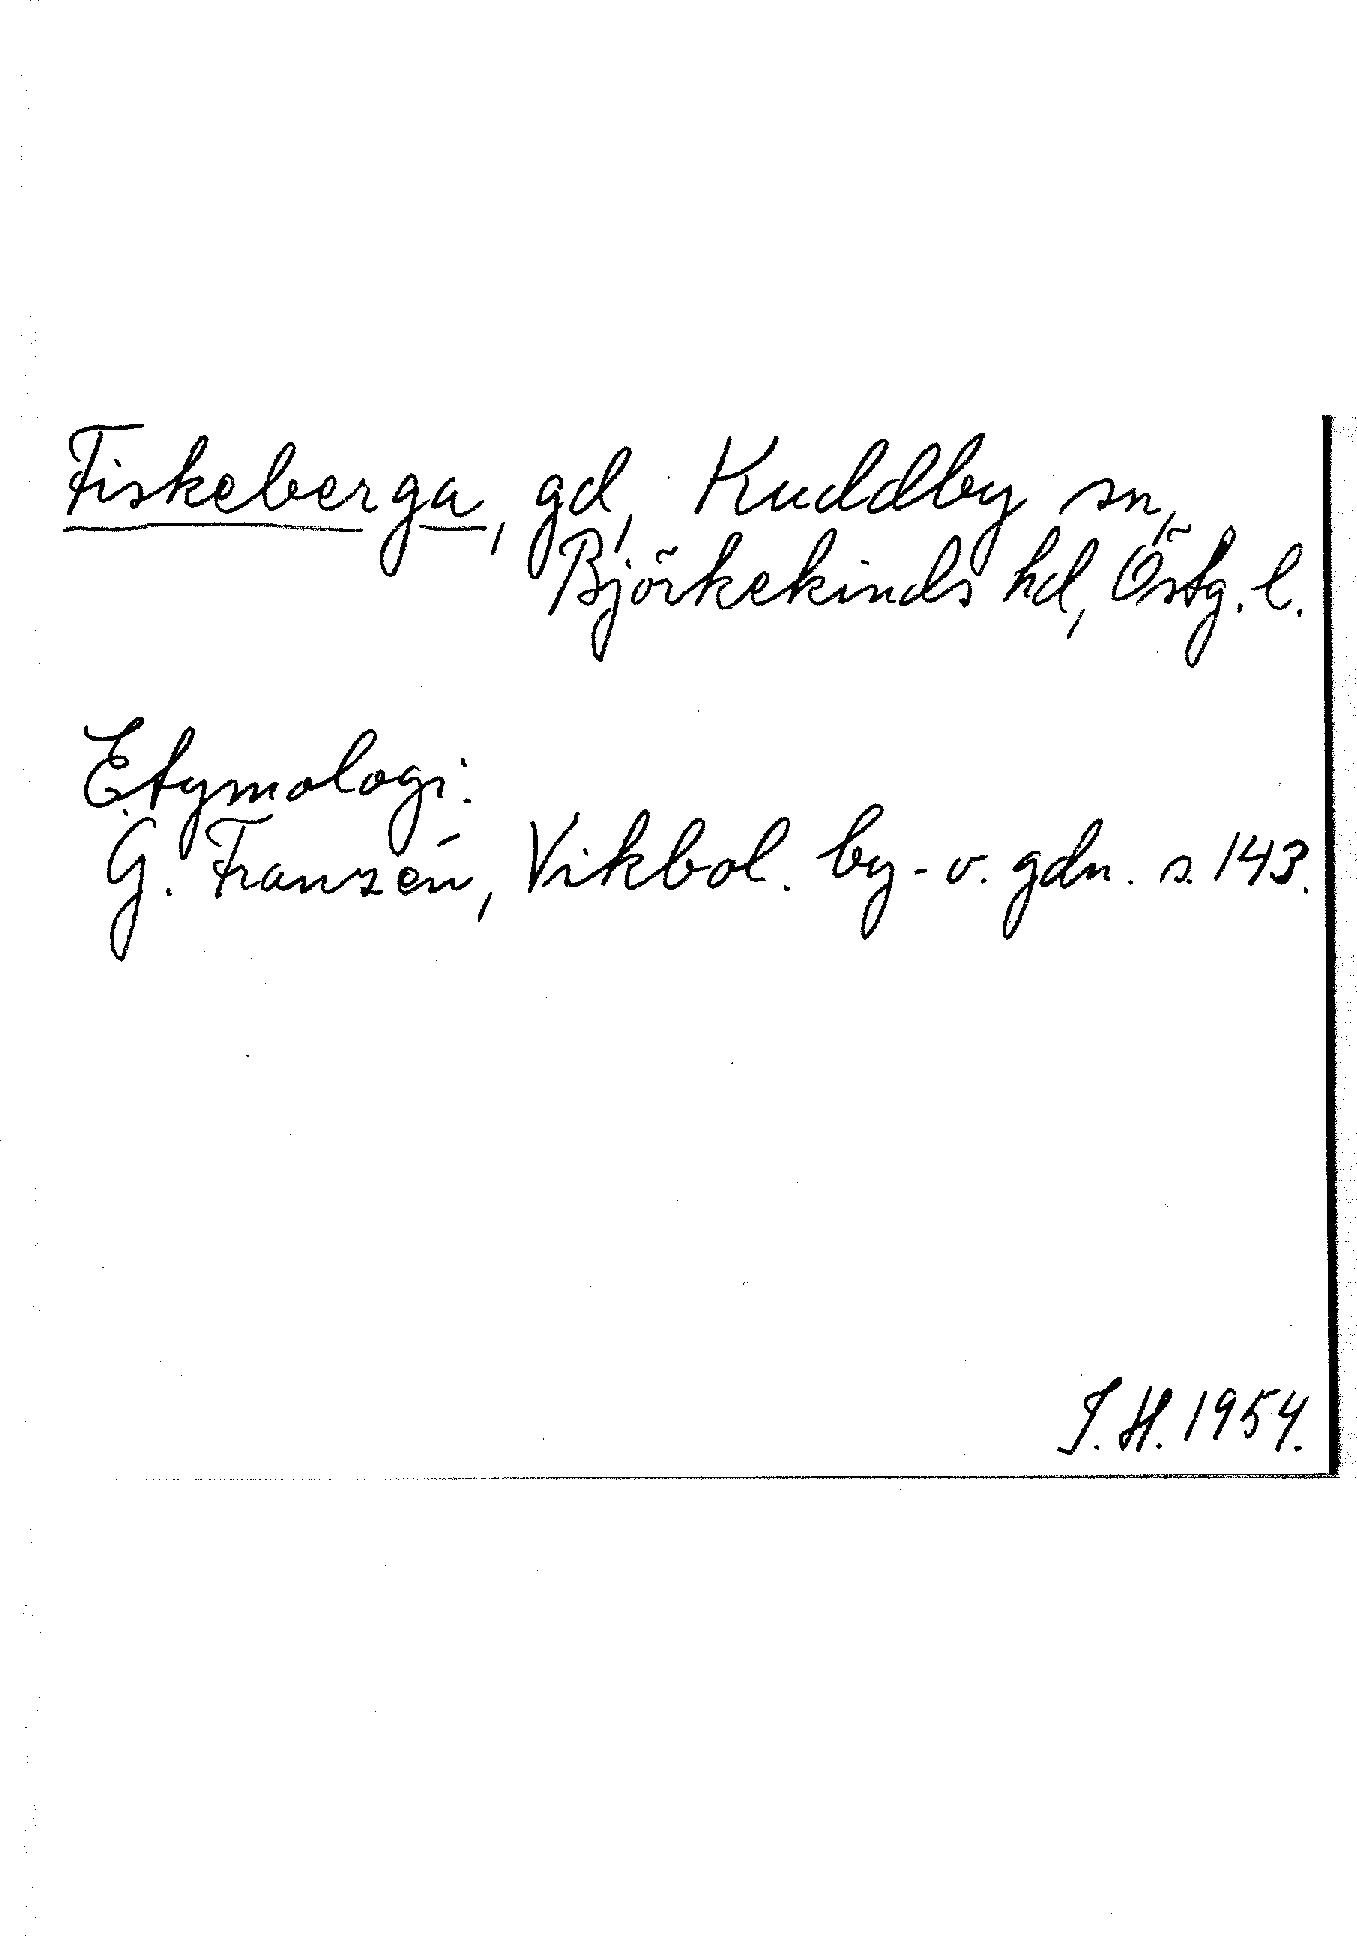 Fiskeberga, gd, Kuddby sn,
Björkekinds hd, Östg. l.
Etymologi:
G. Franzén, Vikbol. by- o. gdn. s. 143.
I. H. 1954.